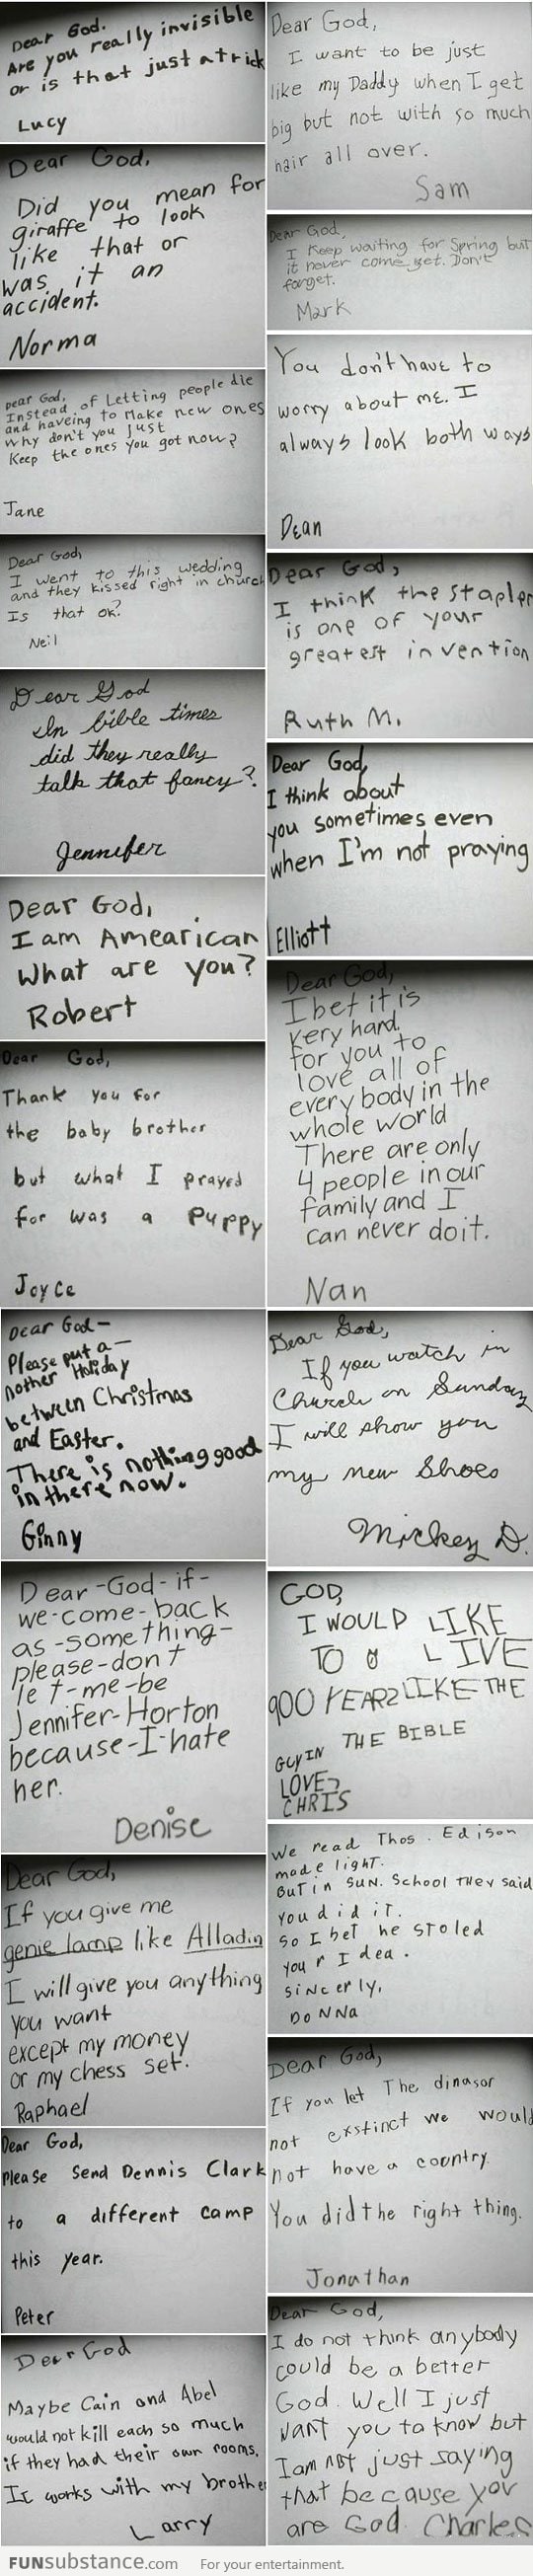 Dear God.
Are you really invisible
or is that just a trick
Lucy
Dear God,
Did you mean for
giraffe to look
like that or
was it an
accident.
Norma
Dear God,
Instead of Letting people die
and haveing to Make new ones
why don't you Just
Keep the ones you got now?
Jane
Dear God,
I went to this wedding
and they kissed right in church
Is that ok?
Neil
Dear God
In bible times
did they really
talk that fancy?
Jennifer
Dear God,
I am Amearican
What are you?
Robert
Dear God,
Thank you for
the baby brother
but what I prayed
for was a puppy
Joyce
Dear God—
Please put a—
nother Holiday
between Christmas
and Easter.
There is nothing good
in there now.
Ginny
Dear-God-if-
we-come-back
as-something-
please-don't
let-me-be
Jennifer-Horton
because-I-hate
her.
Denise
Dear God,
If you give me
genie lamp like Alladin
I will give you anything
you want
except my money
or my chess set.
Raphael
Dear God,
Please Send Dennis Clark
to a different camp
this year.
Peter
Dear God
Maybe Cain and Abel
would not kill each so much
if they had their own rooms.
It works with my brothe
Larry
Dear God,
I want to be just
like my Daddy when I get
big but not with so much
hair all over.
Sam
Dear God,
I Keep waiting for Spring but
it never come yet. Don't
forget.
Mark
You don't have to
worry about me. I
always look both ways
Dean
Dear God,
I think the stapler
is one of your
greatest invention
Ruth M.
Dear God,
I think about
you sometimes even
when I'm not praying
Elliott
Dear God,
I bet it is
very hard
for you to
love all of
every body in the
whole world
There are only
4 people in our
family and I
can never do it.
Nan
Dear God,
If you watch in
Church on Sunday
I will show you
my new Shoes
Mickey D.
GOD,
I WOULD LIKE
TO LIVE
900 YEARS LIKE THE
GUY IN THE BIBLE
LOVE,
CHRIS
We read Thos. Edison
made light.
But in SUN. School They said
you did it.
So I bet he stoled
your Idea.
Sincerly,
DoNNa
Dear God,
If you let The dinasor
not exstinct we would
not have a country.
You did the right thing.
Jonathan
Dear God,
I do not think anybody
could be a better
God. Well I just
want you to know but
I am not just saying
that because you
are God. Charles
FUNsubstance.com For your entertainment.